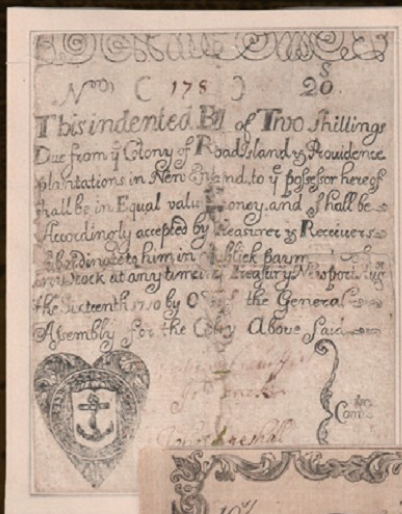 N° ( 178 ) 20 S
This indented Bill of Two Shillings
Due from ye Colony of Road Island & Providence
plantations in New England, to ye possessor hereof
shall be in Equal value money. and shall be
Accordingly accepted by Treasurer & Receivers
Subordinate to him in Publick paym
any Stock at any time in Treasury. Newport
the Sixteenth 1710 by Order of the General
Assembly for the Colony Above Said
Com
10